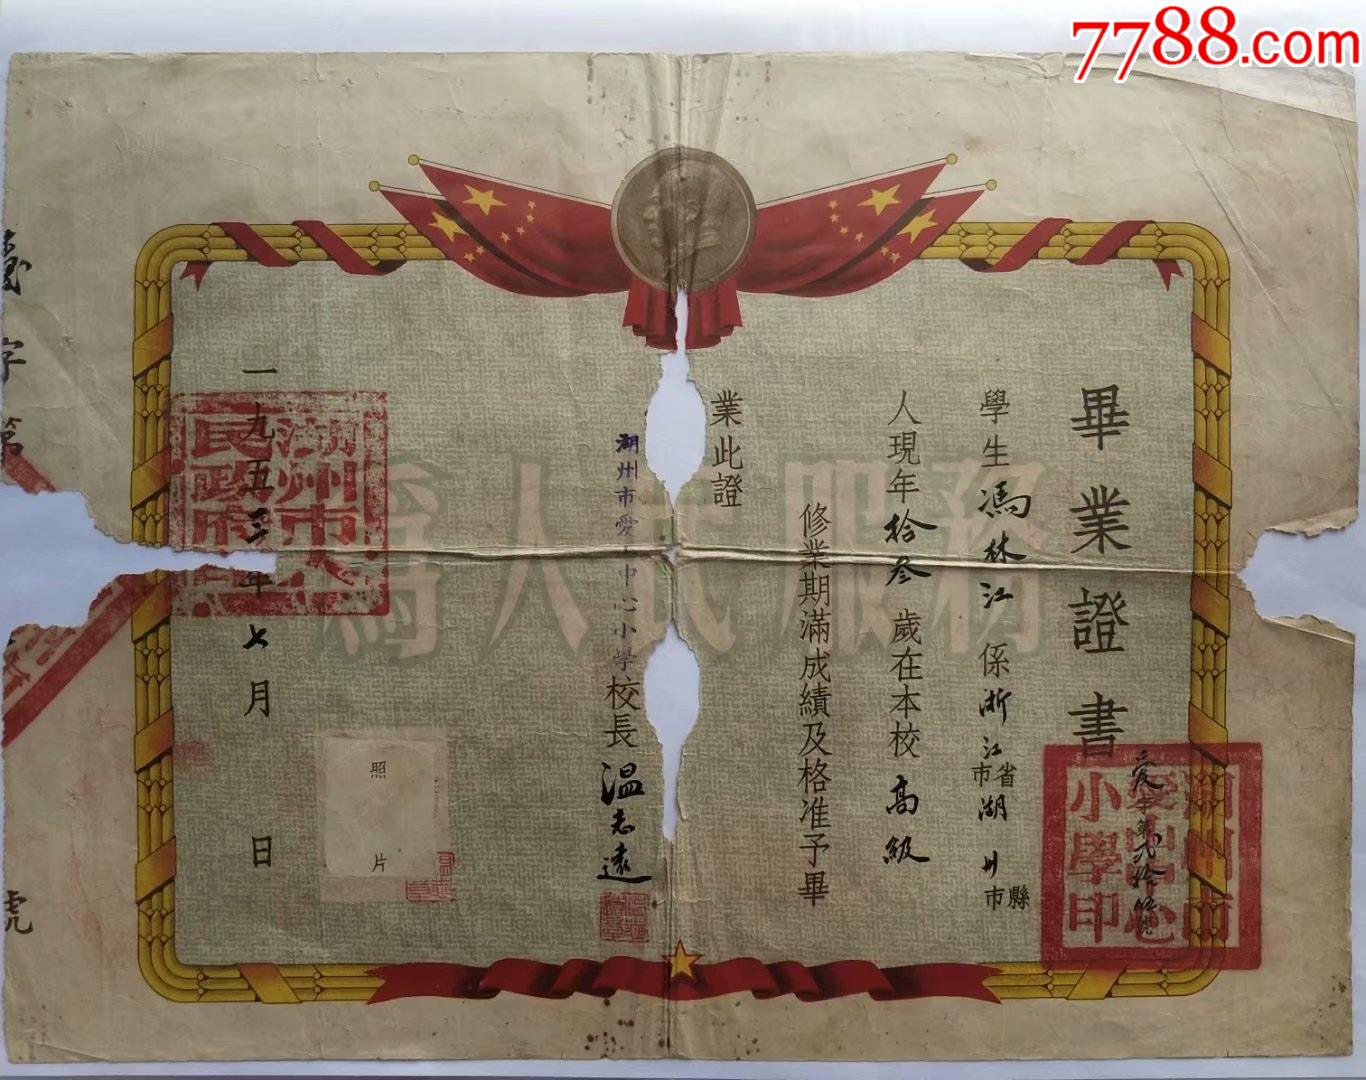 7788.com
畢業證書
愛字第貳拾號
學生馮林江係浙江省市湖州縣市
人現年拾叁歲在本校高級
修業期滿成績及格准予畢
業此證
湖州市愛山中心小学校長温志遠
一九五三年七月日
為人民服務
照片
湖州市愛山中心小學印
湖州市人民政府印
字第
號